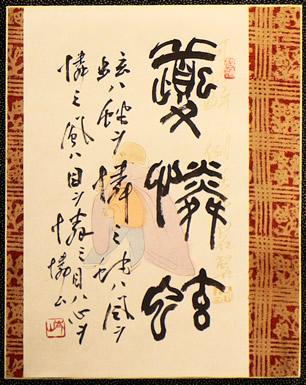 夔憐蚿
蚿ハ蛇ヲ憐ミ蛇ハ風ヲ
憐ミ風ハ目ヲ憐ミ目ハ心ヲ
憐ム